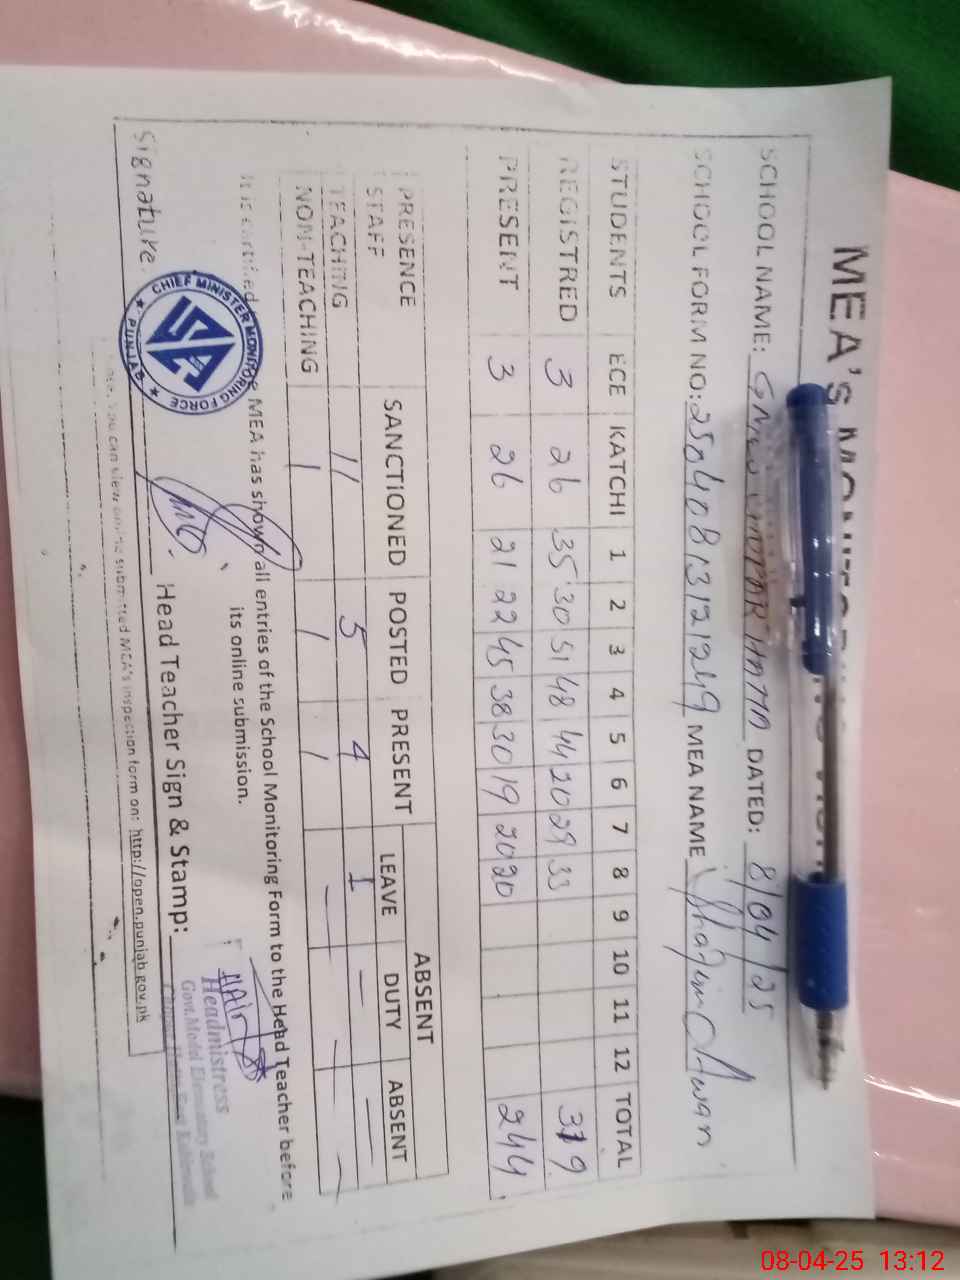 MEA's
SCHOOL NAME: DATED: 8/04/25
SCHOOL FORM NO: 25040813121249 MEA NAME Awan
STUDENTS ECE KATCHI 1 2 3 4 5 6 7 8 9 10 11 12 TOTAL
REGISTRED 3 26 35 30 51 48 44 20 29 33 319
PRESENT 3 26 21 22 45 38 30 19 20 20 244
PRESENCE SANCTIONED POSTED PRESENT ABSENT
STAFF LEAVE DUTY ABSENT
TEACHING 11 5 4 1 — —
NON-TEACHING 1 1 1 — — —
It is certified MEA has shown all entries of the School Monitoring Form to the Head Teacher before
its online submission.
CHIEF MINISTER MONITORING FORCE
PUNJAB
Signature. Head Teacher Sign & Stamp:
Headmistress
Govt.Model Elementary School
you can view submitted MEA's inspection form on: http://open.punjab.gov.pk
08-04-25 13:12